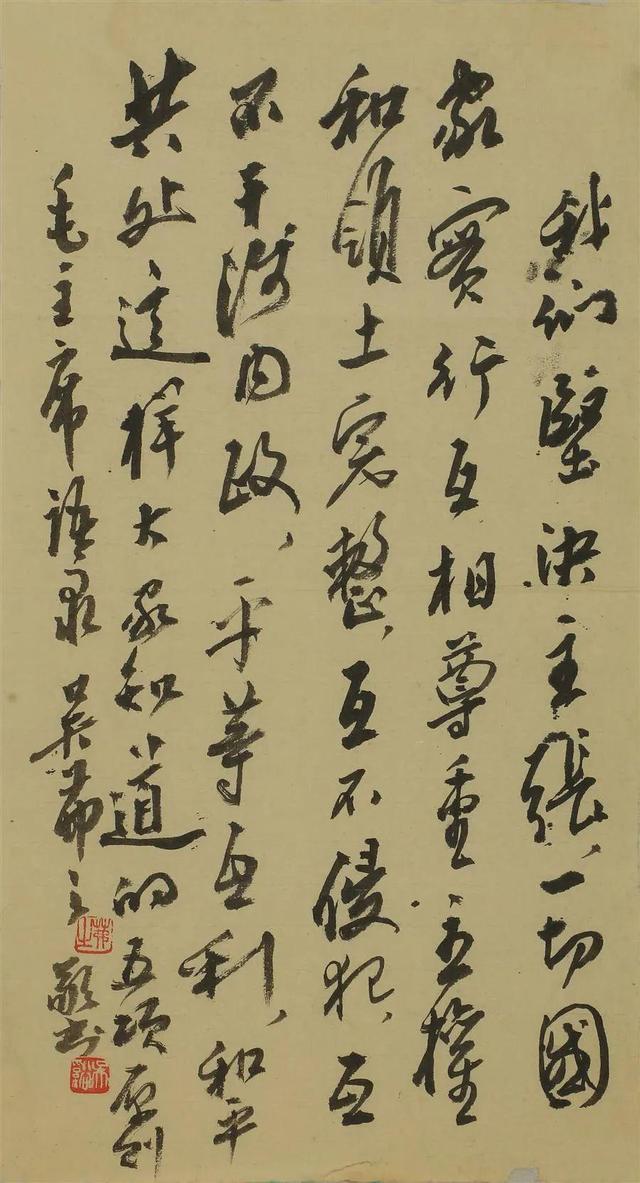 我们堅决主張、一切國
家實行互相尊重主權
和領土完整、互不侵犯、互
不干涉内政、平等互利、和平
共处这样大家知道的五项原则
毛主席語录 吴茀之敬书
茀之